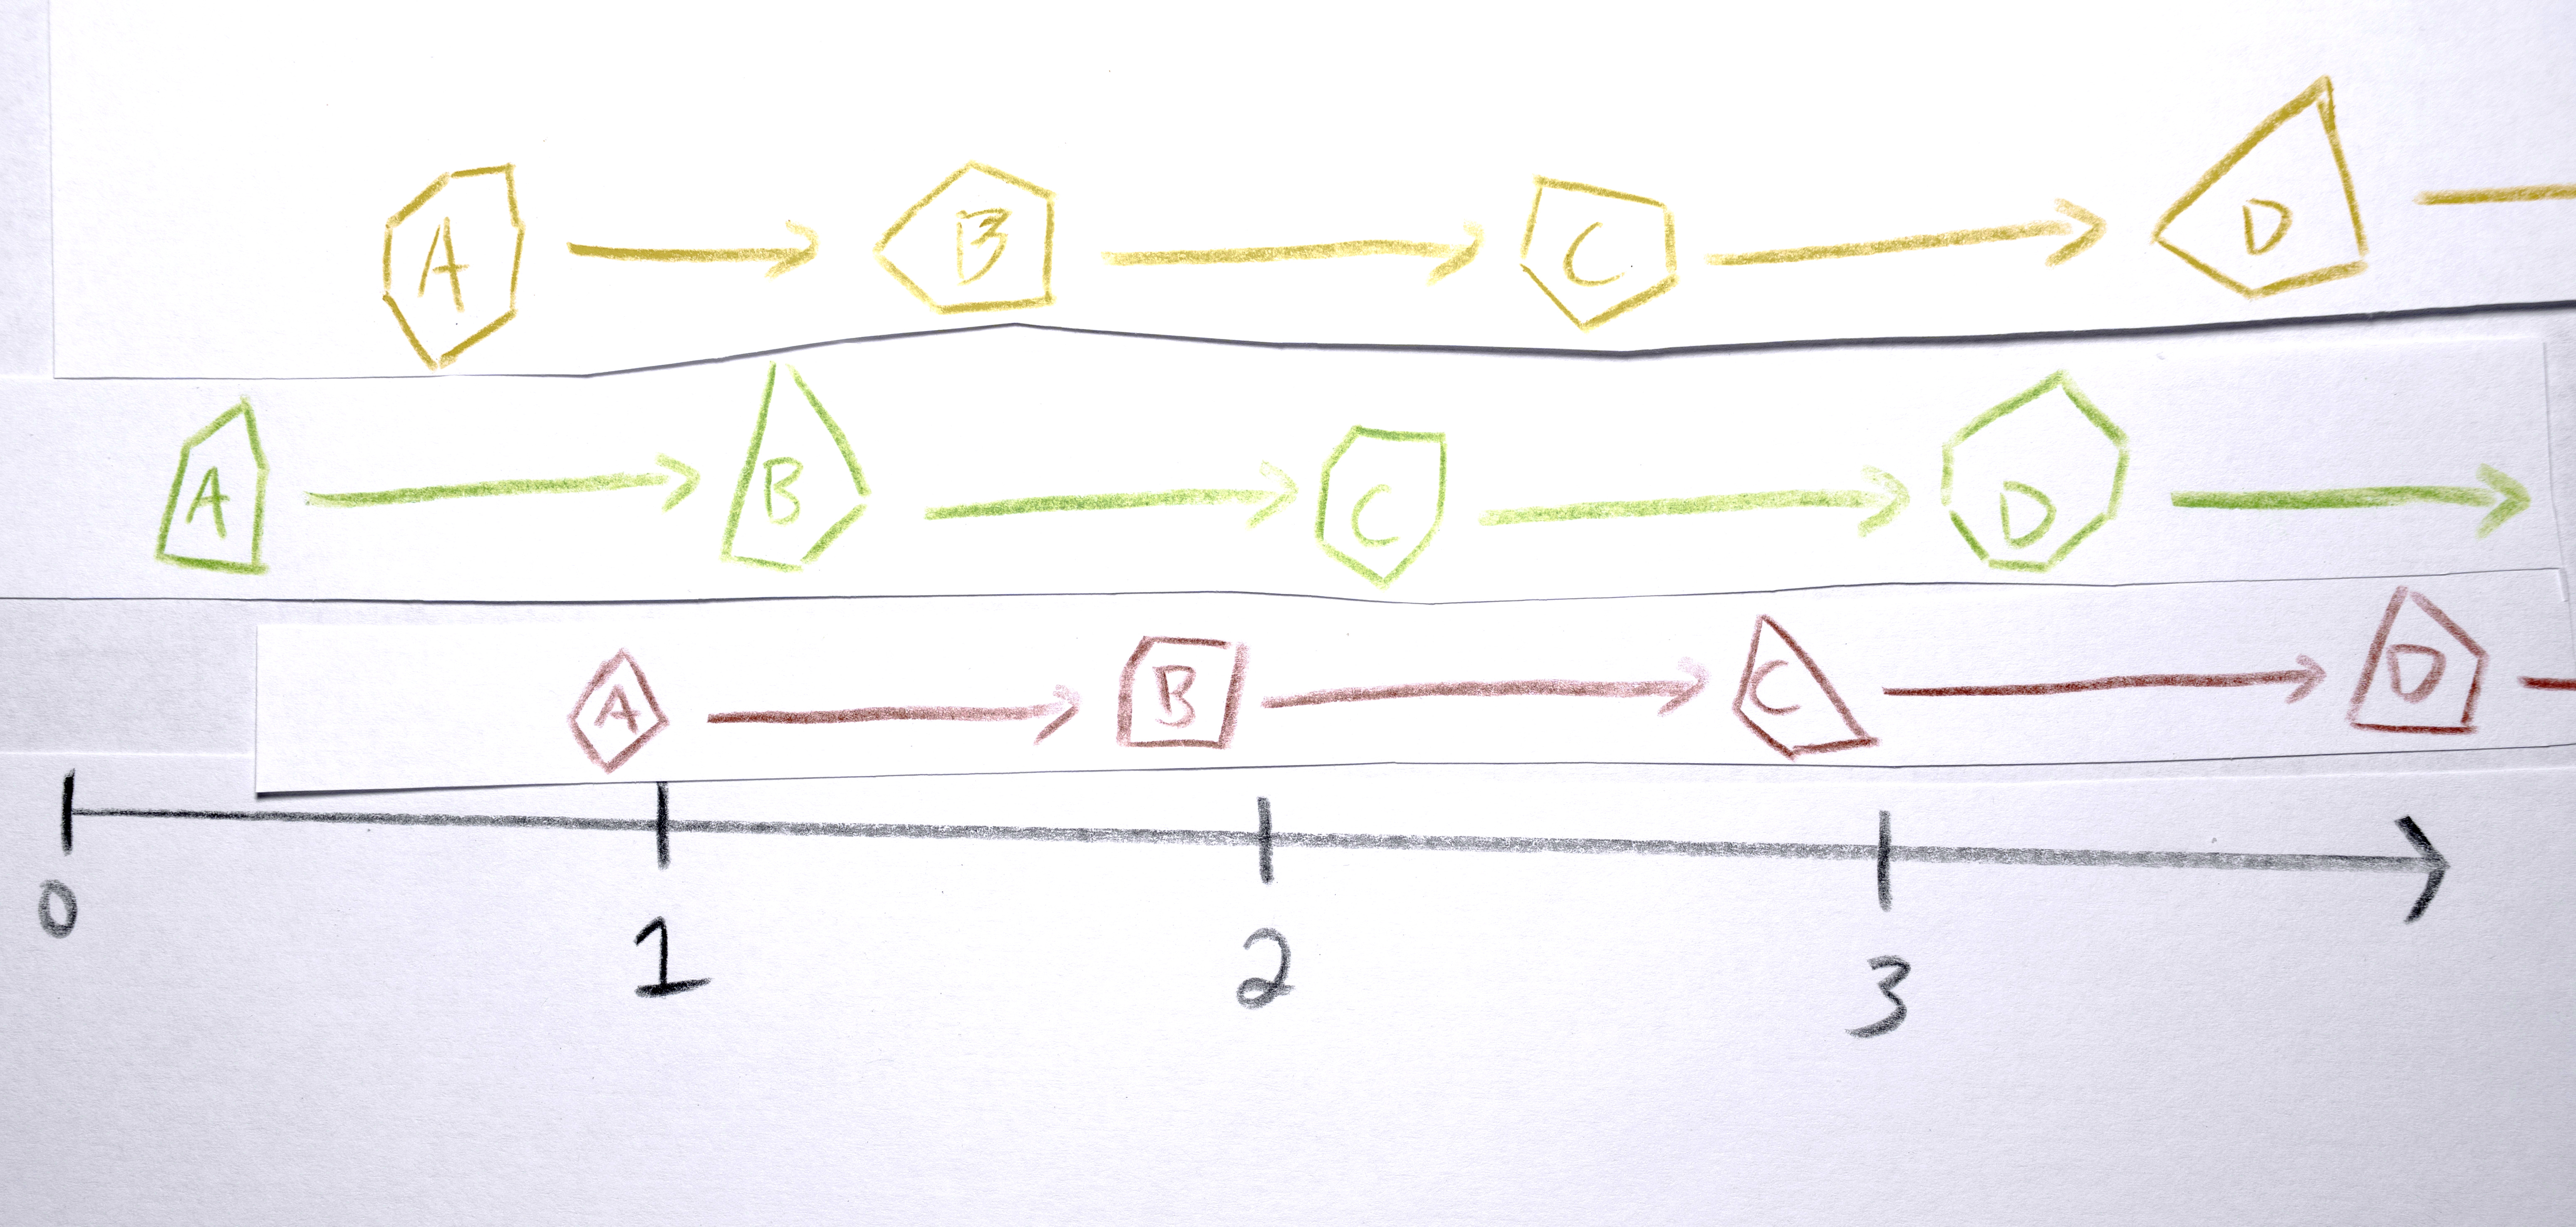 A B C D
A B C D
A B C D
0 1 2 3